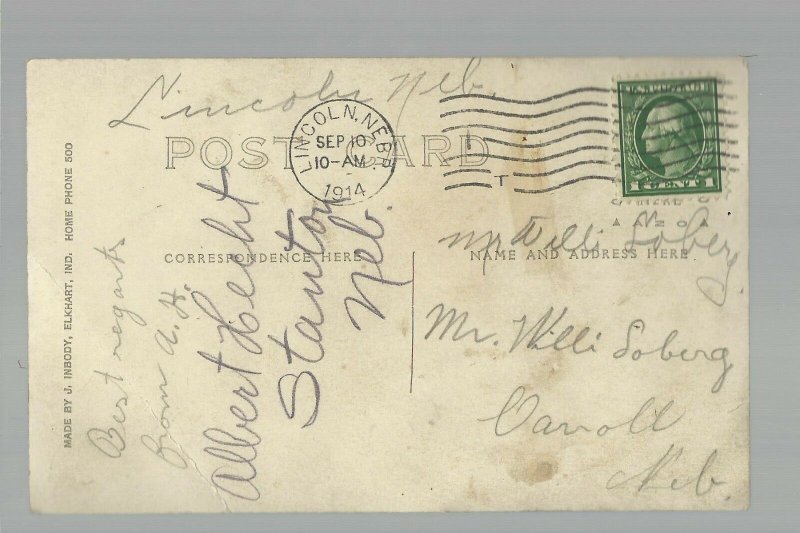 Lincoln Neb.
POST CARD
LINCOLN, NEBR.
SEP 10
10-AM
1914
T
1 CENT 1
HERE
CORRESPONDENCE HERE
NAME AND ADDRESS HERE
Best regards
from A. H.
Albert Hecht
Stanton
Neb.
Mr Willi Soberg
Mr. Willi Soberg
Carroll
Neb.
MADE BY J. INBODY, ELKHART, IND. HOME PHONE 500